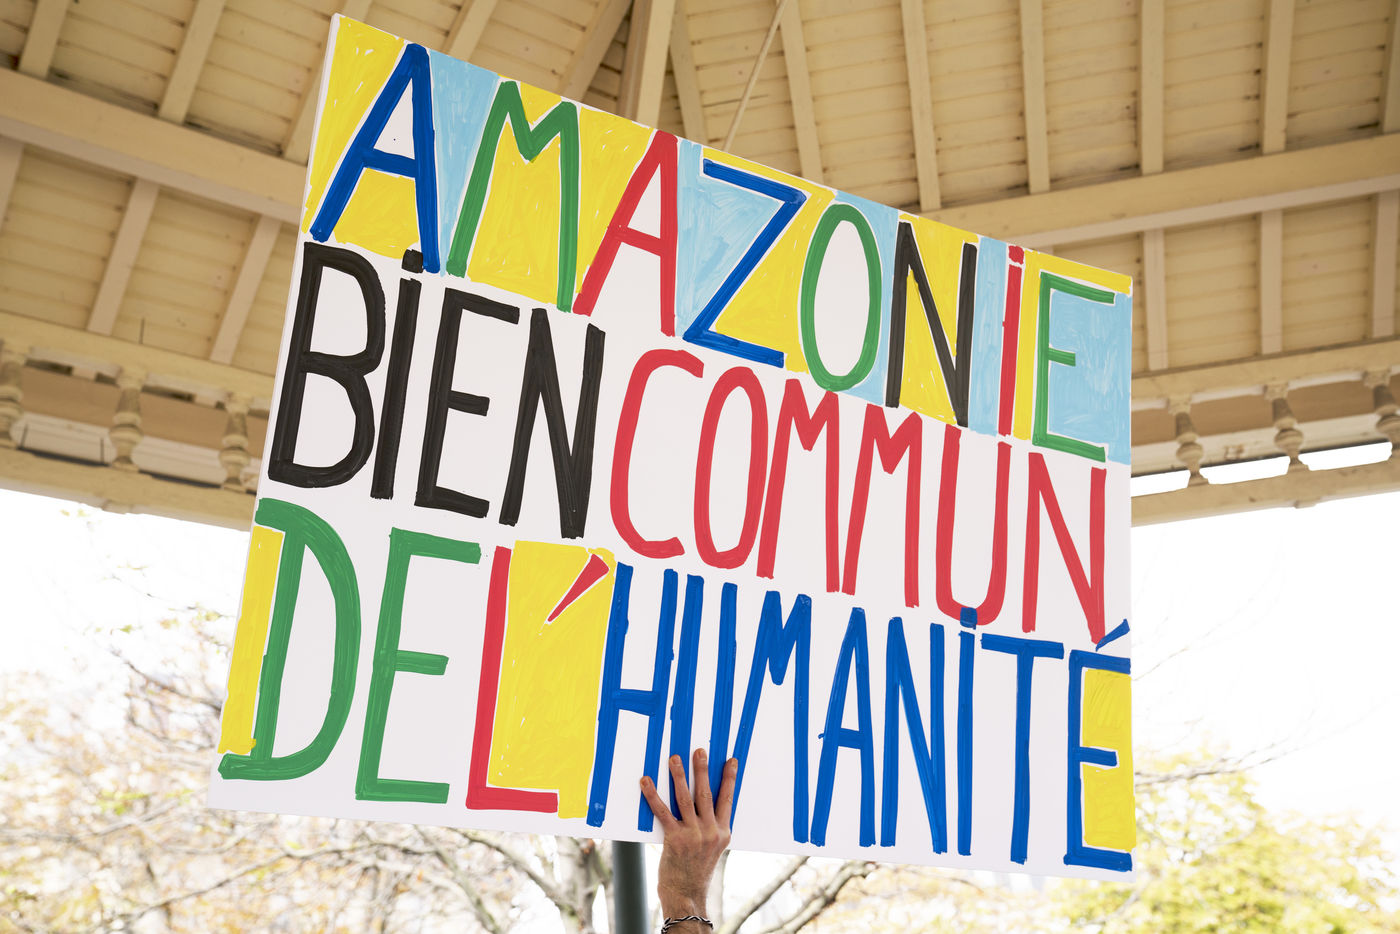 AMAZONiE
BiEN COMMUN
DE L'HUMANiTÉ